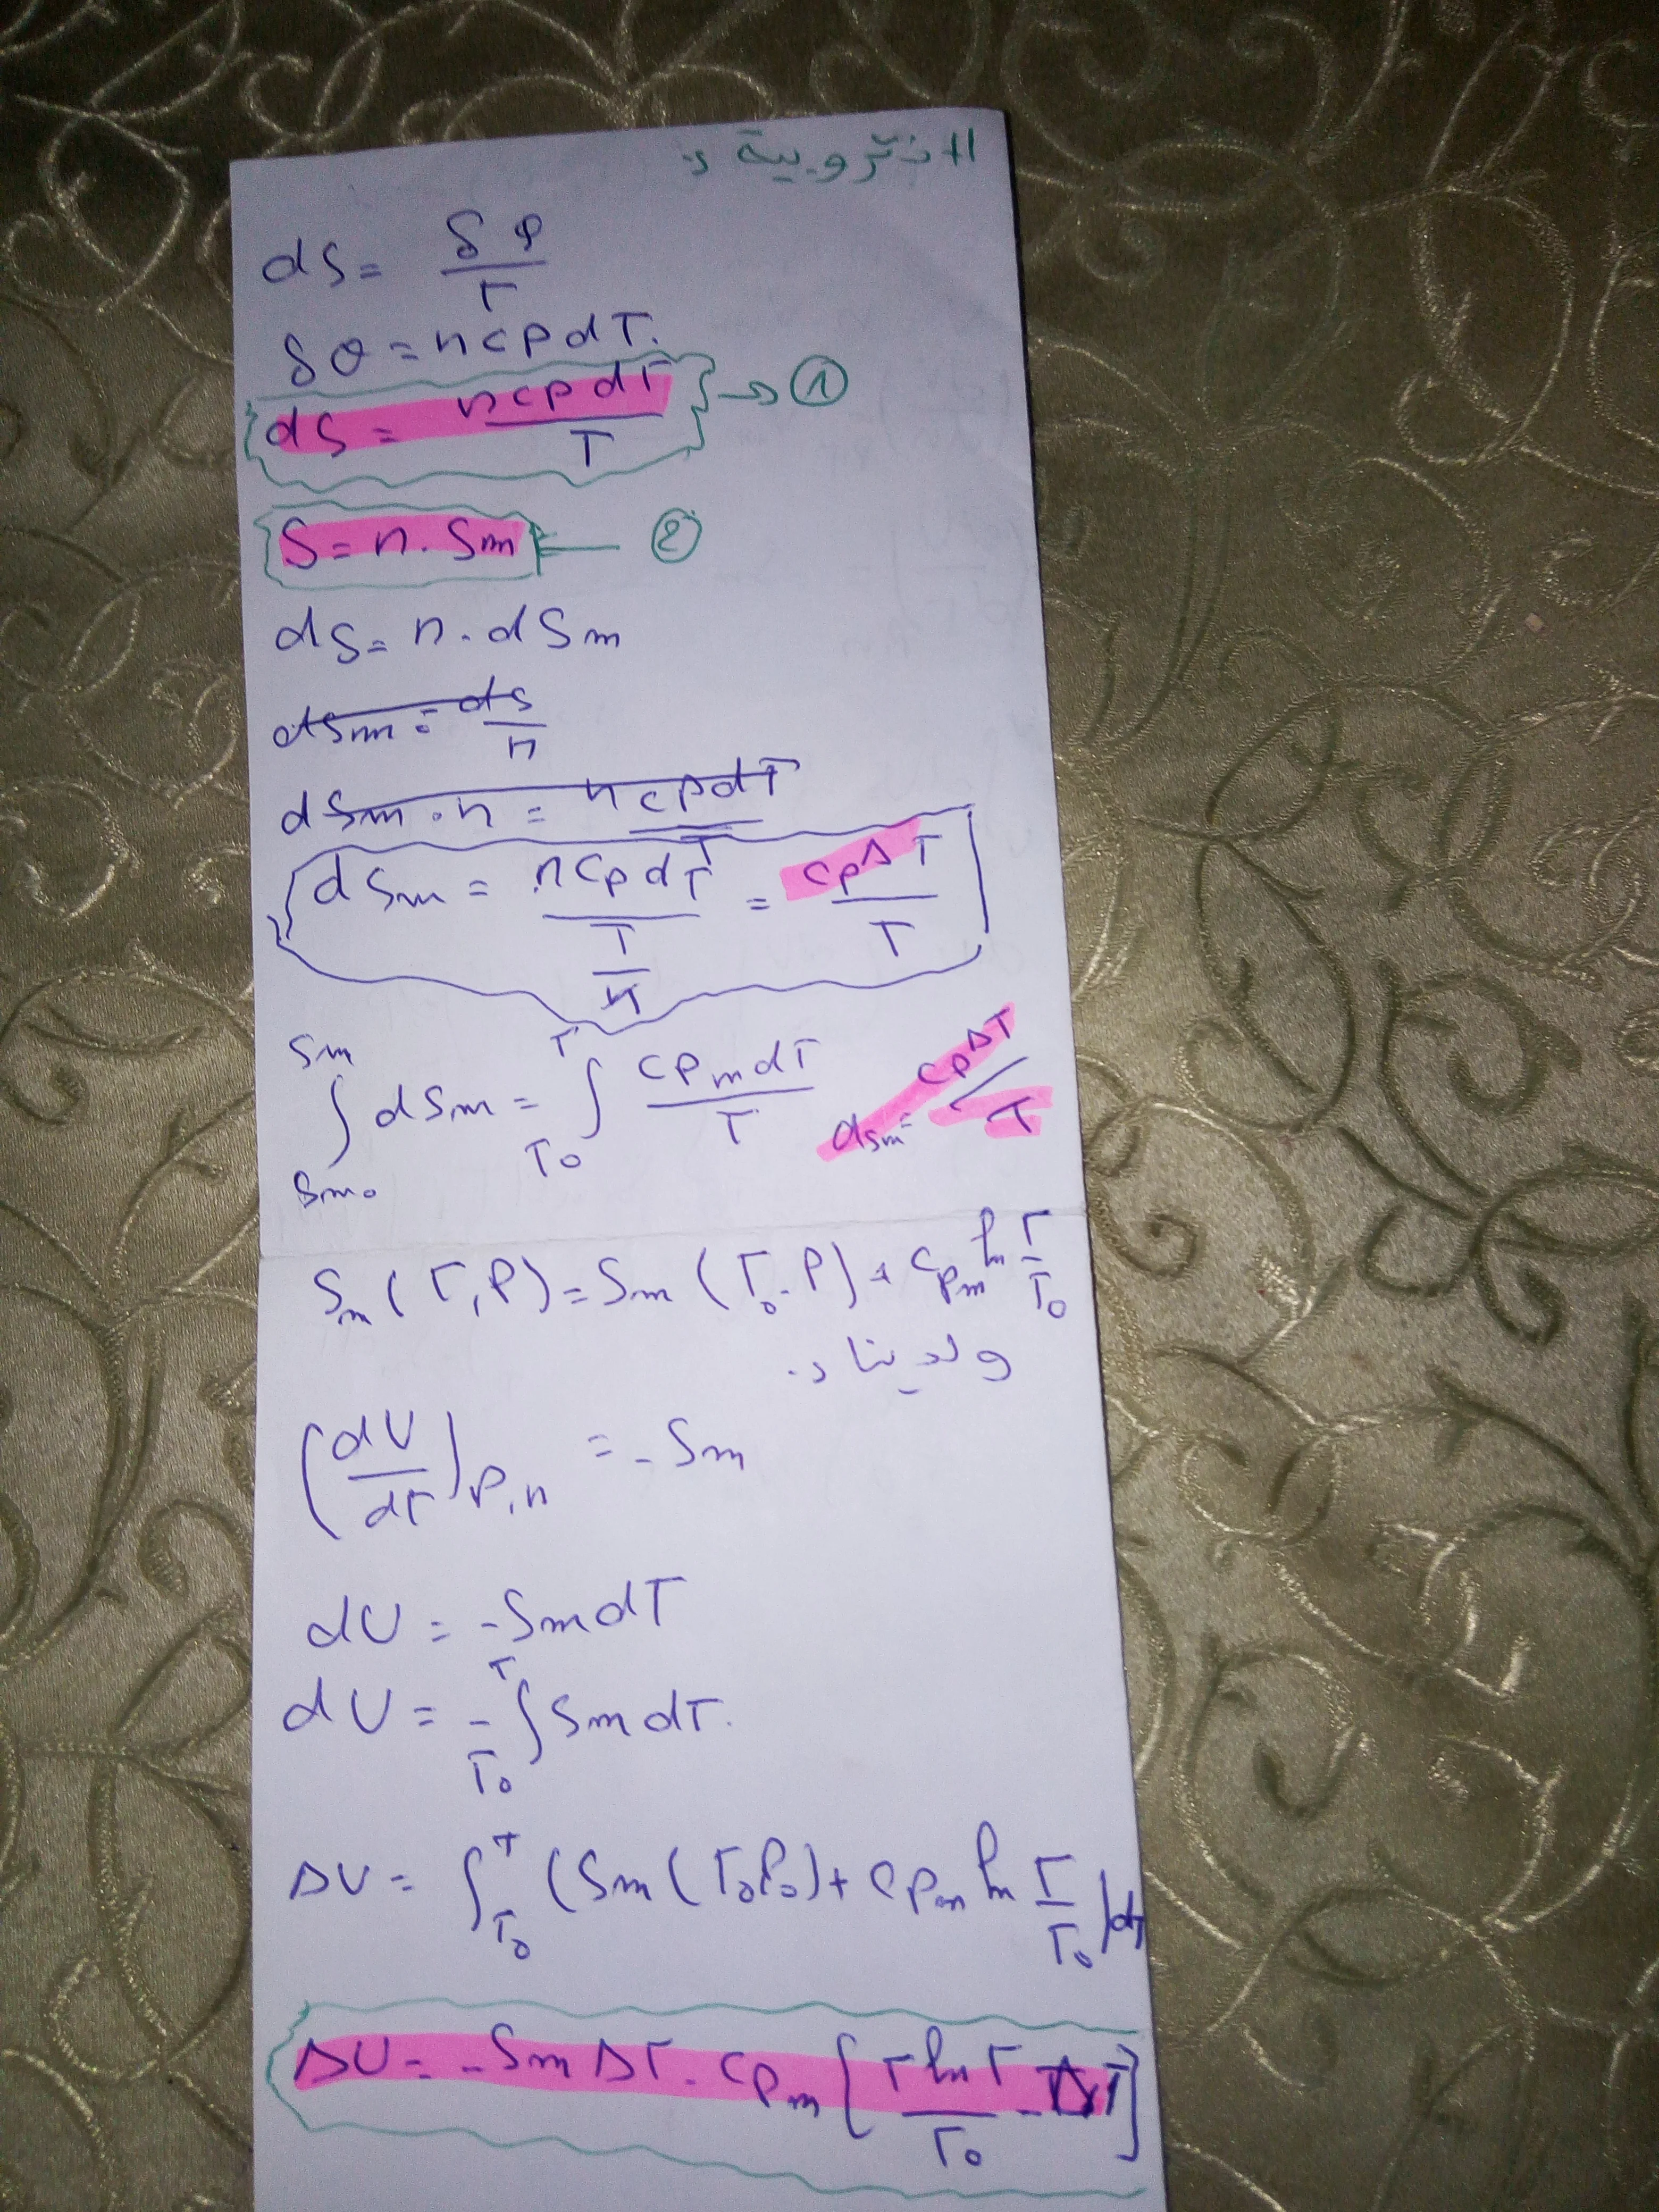 الانتروبية :
dS = δφ / T
δQ = n cp dT.
dS = n cp dT / T → ①
S = n . Sm ← ②
dS = n . dSm
dSm = dS / n
dSm . n = n cp dT / T
dSm = n cp dT / T / n = cp ΔT / T
∫ Sm Sm₀ dSm = ∫ T T₀ cpm dT / T
dsm = cp ΔT / T
Sm (T, P) = Sm (T₀ . P) + cpm ln T / T₀
ولدينا :
(dU / dT) P,n = - Sm
dU = - Sm dT
dU = - ∫ T T₀ Sm dT.
ΔU = ∫ T T₀ (Sm (T₀ P₀) + cpm ln T / T₀) dT
ΔU = - Sm ΔT - cpm [T ln T / T₀ - ΔT]